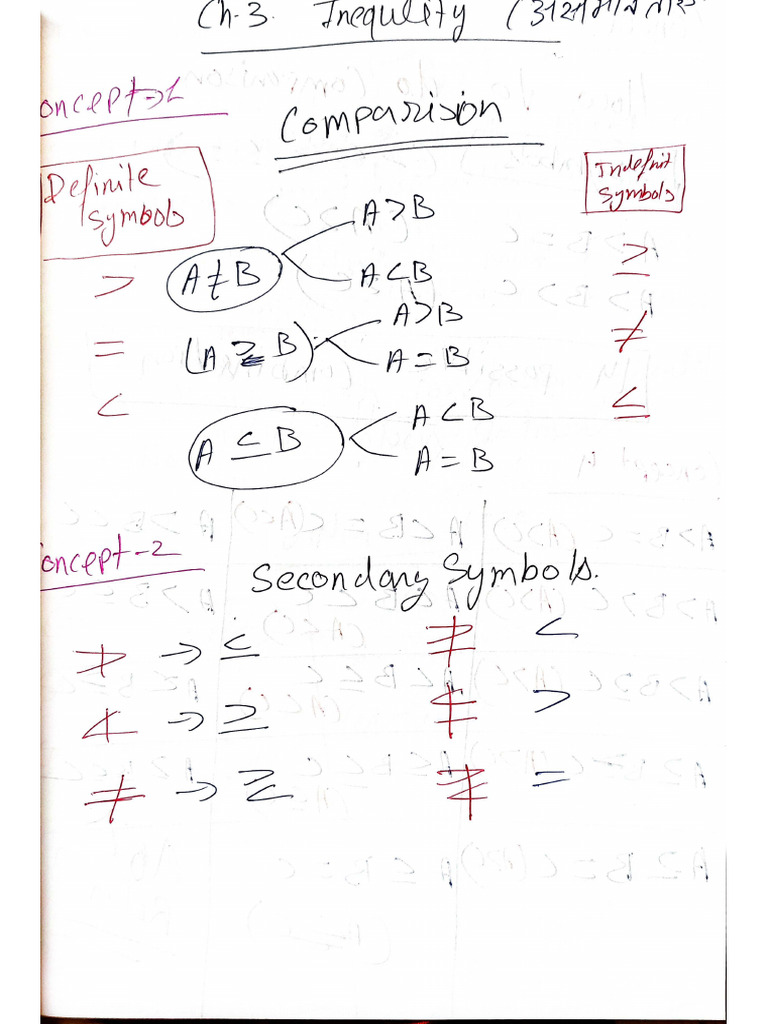 Ch-3. Inequlity (असमानता
oncept-1
Comparision
Definite Symbols
Indefinit Symbols
A > B
> A ≠ B ≥
A < B
A > B
= (A ≥ B) ≠
A = B
< ≤
A < B
A ≤ B
A = B
oncept-2
Secondary Symbols.
≯ → ≤ ≱ <
≮ → ≥ ≰ >
≠ → ≷ =